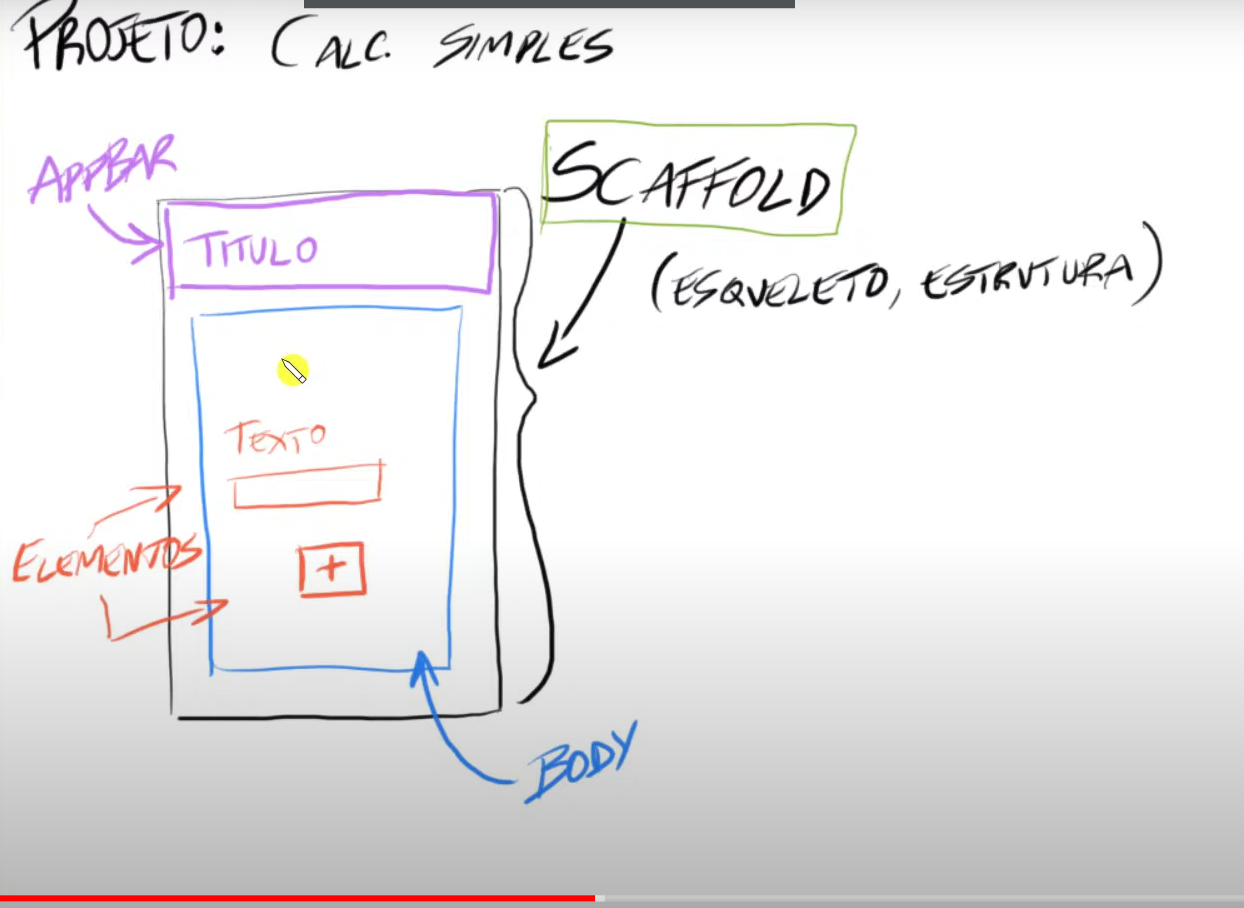 PROJETO: CALC. SIMPLES
APPBAR
SCAFFOLD
TITULO
(ESQUELETO, ESTRUTURA)
TEXTO
ELEMENTOS
+
BODY